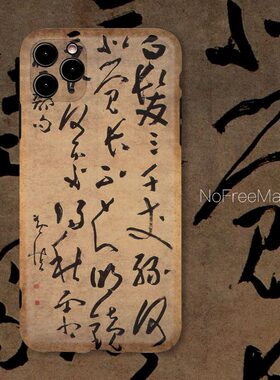 白髮三千丈緣愁
似箇長不知明鏡
何處得秋霜
NoFreeMa